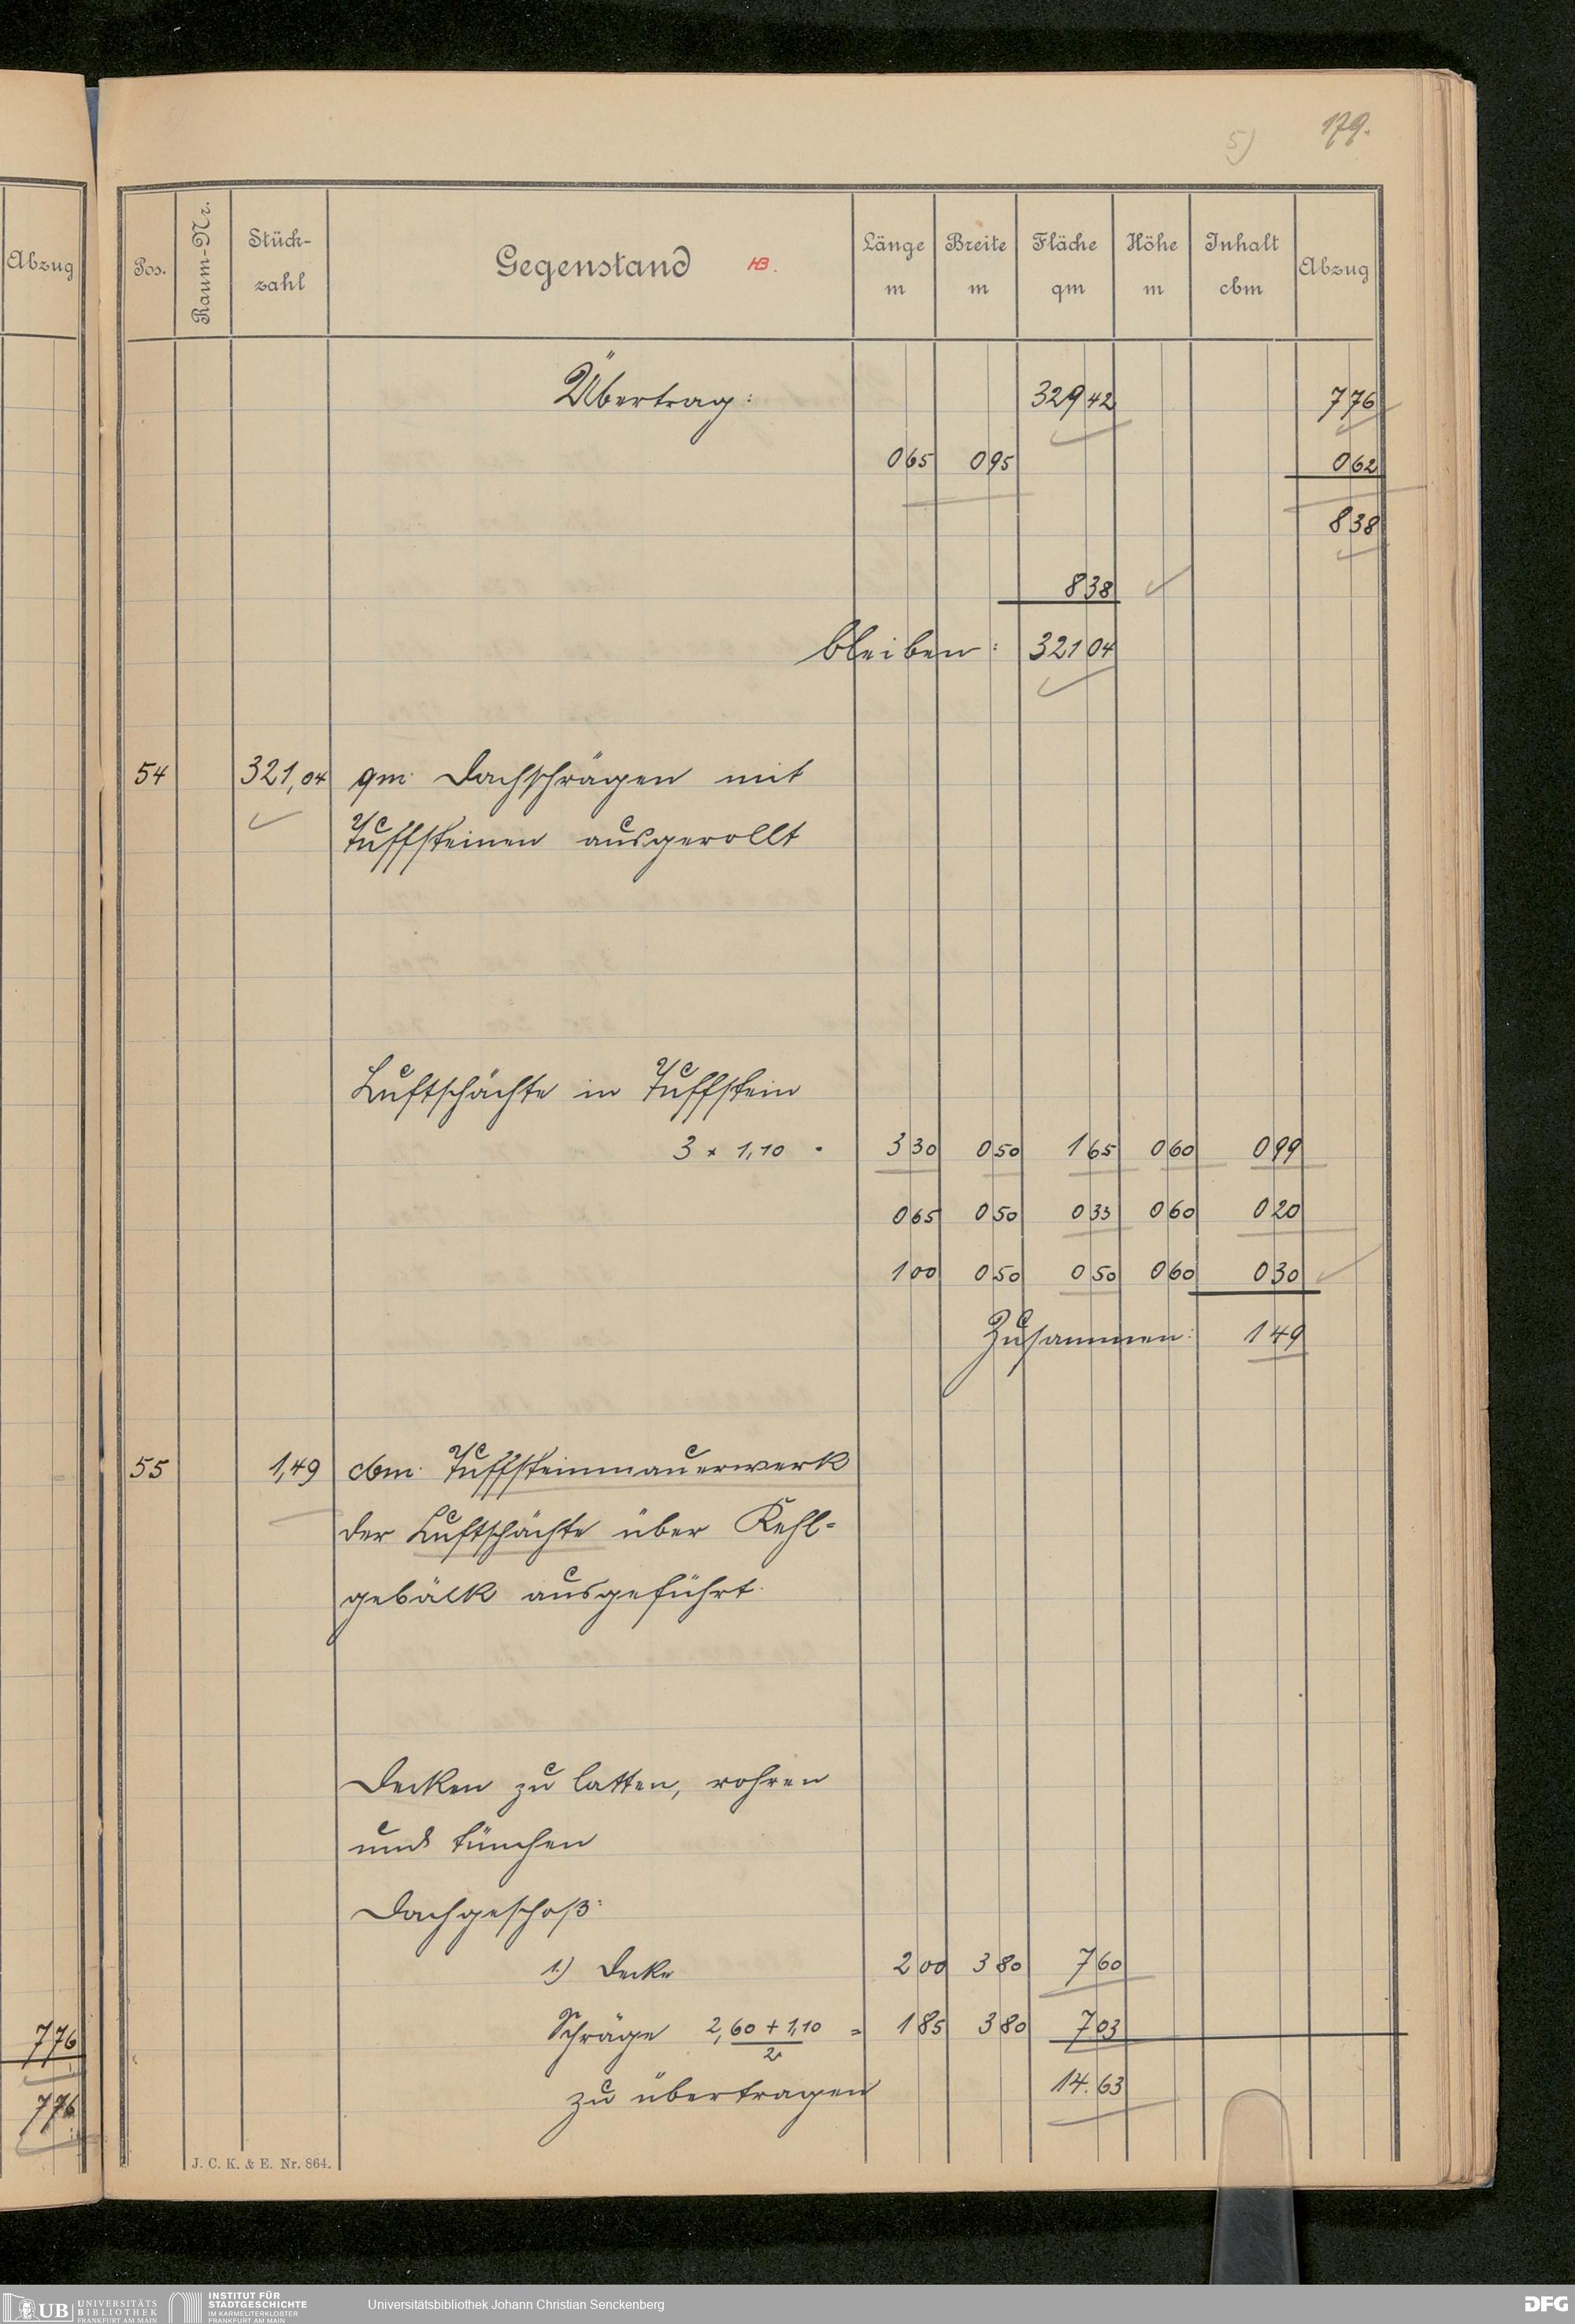 5) 179.
Abzug
Pos. Raum-Nr. Stück-zahl Gegenstand HB. Länge m Breite m Fläche qm Höhe m Inhalt cbm Abzug
Übertrag: 329 42 7 76
0 65 0 95 0 62
8 38
8 38
bleiben: 321 04
54 321,04 qm. Dachschrägen mit
Tuffsteinen ausgerollt
Luftschächte in Tuffstein
3 x 1,10 = 3 30 0 50 1 65 0 60 0 99
0 65 0 50 0 33 0 60 0 20
1 00 0 50 0 50 0 60 0 30
Zusammen: 1 49
55 1,49 cbm. Tuffsteinmauerwerk
der Luftschächte über Kehl-
gebälk ausgeführt.
Decken zu latten, rohren
und tünchen
Dachgeschoß:
1.) Decke 2 00 3 80 7 60
Schräge 2,60 + 1,10 / 2 = 1 85 3 80 7 03
zu übertragen 14. 63
7 76
7 76
J. C. K. & E. Nr. 864.
UB UNIVERSITÄTS BIBLIOTHEK FRANKFURT AM MAIN
INSTITUT FÜR STADTGESCHICHTE IM KARMELITERKLOSTER FRANKFURT AM MAIN
Universitätsbibliothek Johann Christian Senckenberg
DFG